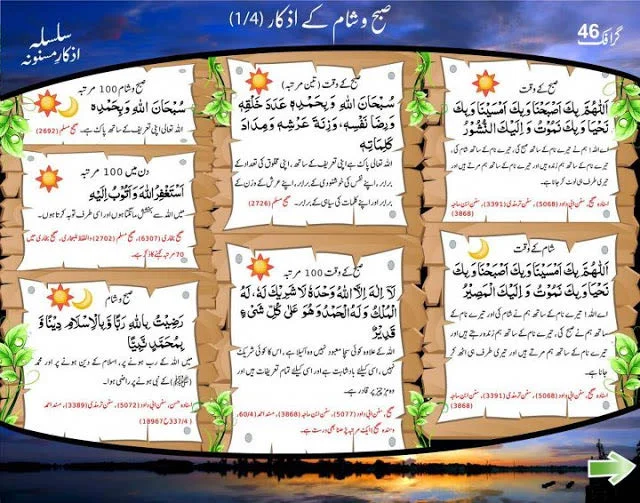 صبح و شام کے اذکار (1/4)
گرافک 46
سلسلہ
اذکارِ مسنونہ
صبح کے وقت
اَللّٰهُمَّ بِكَ اَصْبَحْنَا وَبِكَ اَمْسَيْنَا وَبِكَ
نَحْيَا وَبِكَ نَمُوْتُ وَ اِلَيْكَ النُّشُوْرُ
اے اللہ! ہم نے تیرے نام کے ساتھ صبح کی، تیرے نام کے ساتھ
شام کی، تیرے نام کے ساتھ ہم زندہ ہیں اور تیرے نام کے ساتھ ہم مرتے ہیں اور
تیری طرف ہی لوٹ کر جانا ہے۔
اسنادہ صحیح، سنن ابی داود (5068)، سنن ترمذی (3391)، سنن ابن ماجہ
(3868)
شام کے وقت
اَللّٰهُمَّ بِكَ اَمْسَيْنَا وَبِكَ اَصْبَحْنَا وَبِكَ
نَحْيَا وَبِكَ نَمُوْتُ وَ اِلَيْكَ الْمَصِيْرُ
اے اللہ! تیرے نام کے ساتھ ہم نے شام کی اور تیرے نام کے
ساتھ ہم نے صبح کی، تیرے نام کے ساتھ ہم زندہ رہتے اور
تیرے نام کے ساتھ ہم مرتے ہیں اور تیری طرف ہی اٹھ کر
جانا ہے۔
اسنادہ صحیح، سنن ابی داود (5068)، سنن ترمذی (3391)، سنن ابن ماجہ
(3868)
صبح کے وقت (تین مرتبہ)
سُبْحَانَ اللّٰهِ وَ بِحَمْدِهٖ عَدَدَ خَلْقِهٖ
وَ رِضَا نَفْسِهٖ، وَزِنَةَ عَرْشِهٖ وَ مِدَادَ
كَلِمَاتِهٖ
اللہ تعالی پاک ہے اپنی تعریف کے ساتھ، اپنی مخلوق کی تعداد کے
برابر، اپنے نفس کی خوشنودی کے برابر، اپنے عرش کے وزن کے
برابر اور اپنے کلمات کی سیاہی کے برابر۔ صحیح مسلم (2726)
صبح کے وقت 100 مرتبہ
لَآ اِلٰهَ اِلَّا اللّٰهُ وَحْدَهٗ لَا شَرِيْكَ لَهٗ، لَهُ
الْمُلْكُ وَ لَهُ الْحَمْدُ وَ هُوَ عَلٰى كُلِّ شَيْءٍ
قَدِيْرٌ
اللہ کے علاوہ کوئی سچا معبود نہیں وہ اکیلا ہے، اس کا کوئی شریک
نہیں، اسی کیلئے بادشاہت ہے اور اسی کیلئے تمام تعریفات ہیں اور
وہ ہر چیز پر قادر ہے۔
صحیح، سنن ابی داود (5077)، سنن ابن ماجہ (3868)، مسند احمد (60/4)
وسندہ صحیح) ایک مرتبہ پڑھنا بھی درست ہے۔
صبح و شام 100 مرتبہ
سُبْحَانَ اللّٰهِ وَ بِحَمْدِهٖ
اللہ تعالی اپنی تعریف کے ساتھ پاک ہے۔ صحیح مسلم (2692)
دن میں 100 مرتبہ
اَسْتَغْفِرُ اللّٰهَ وَ اَتُوْبُ اِلَيْهِ
میں اللہ سے بخشش مانگتا ہوں اور اسی طرف توبہ کرتا ہوں۔
صحیح بخاری (6307)، صحیح مسلم (2702) واللفظ للبخاری، صحیح بخاری میں
70 مرتبہ کہنے کا ذکر ہے۔
صبح و شام
رَضِيْتُ بِاللّٰهِ رَبًّا وَّ بِالْاِسْلَامِ دِيْنًا وَّ
بِمُحَمَّدٍ نَّبِيًّا
میں اللہ کے رب ہونے پر، اسلام کے دین ہونے پر اور محمد
(ﷺ) کے نبی ہونے پر راضی ہوا۔
اسنادہ حسن، سنن ابی داود (5072)، سنن ترمذی (3389)، مسند احمد
(337/4 ح18967)